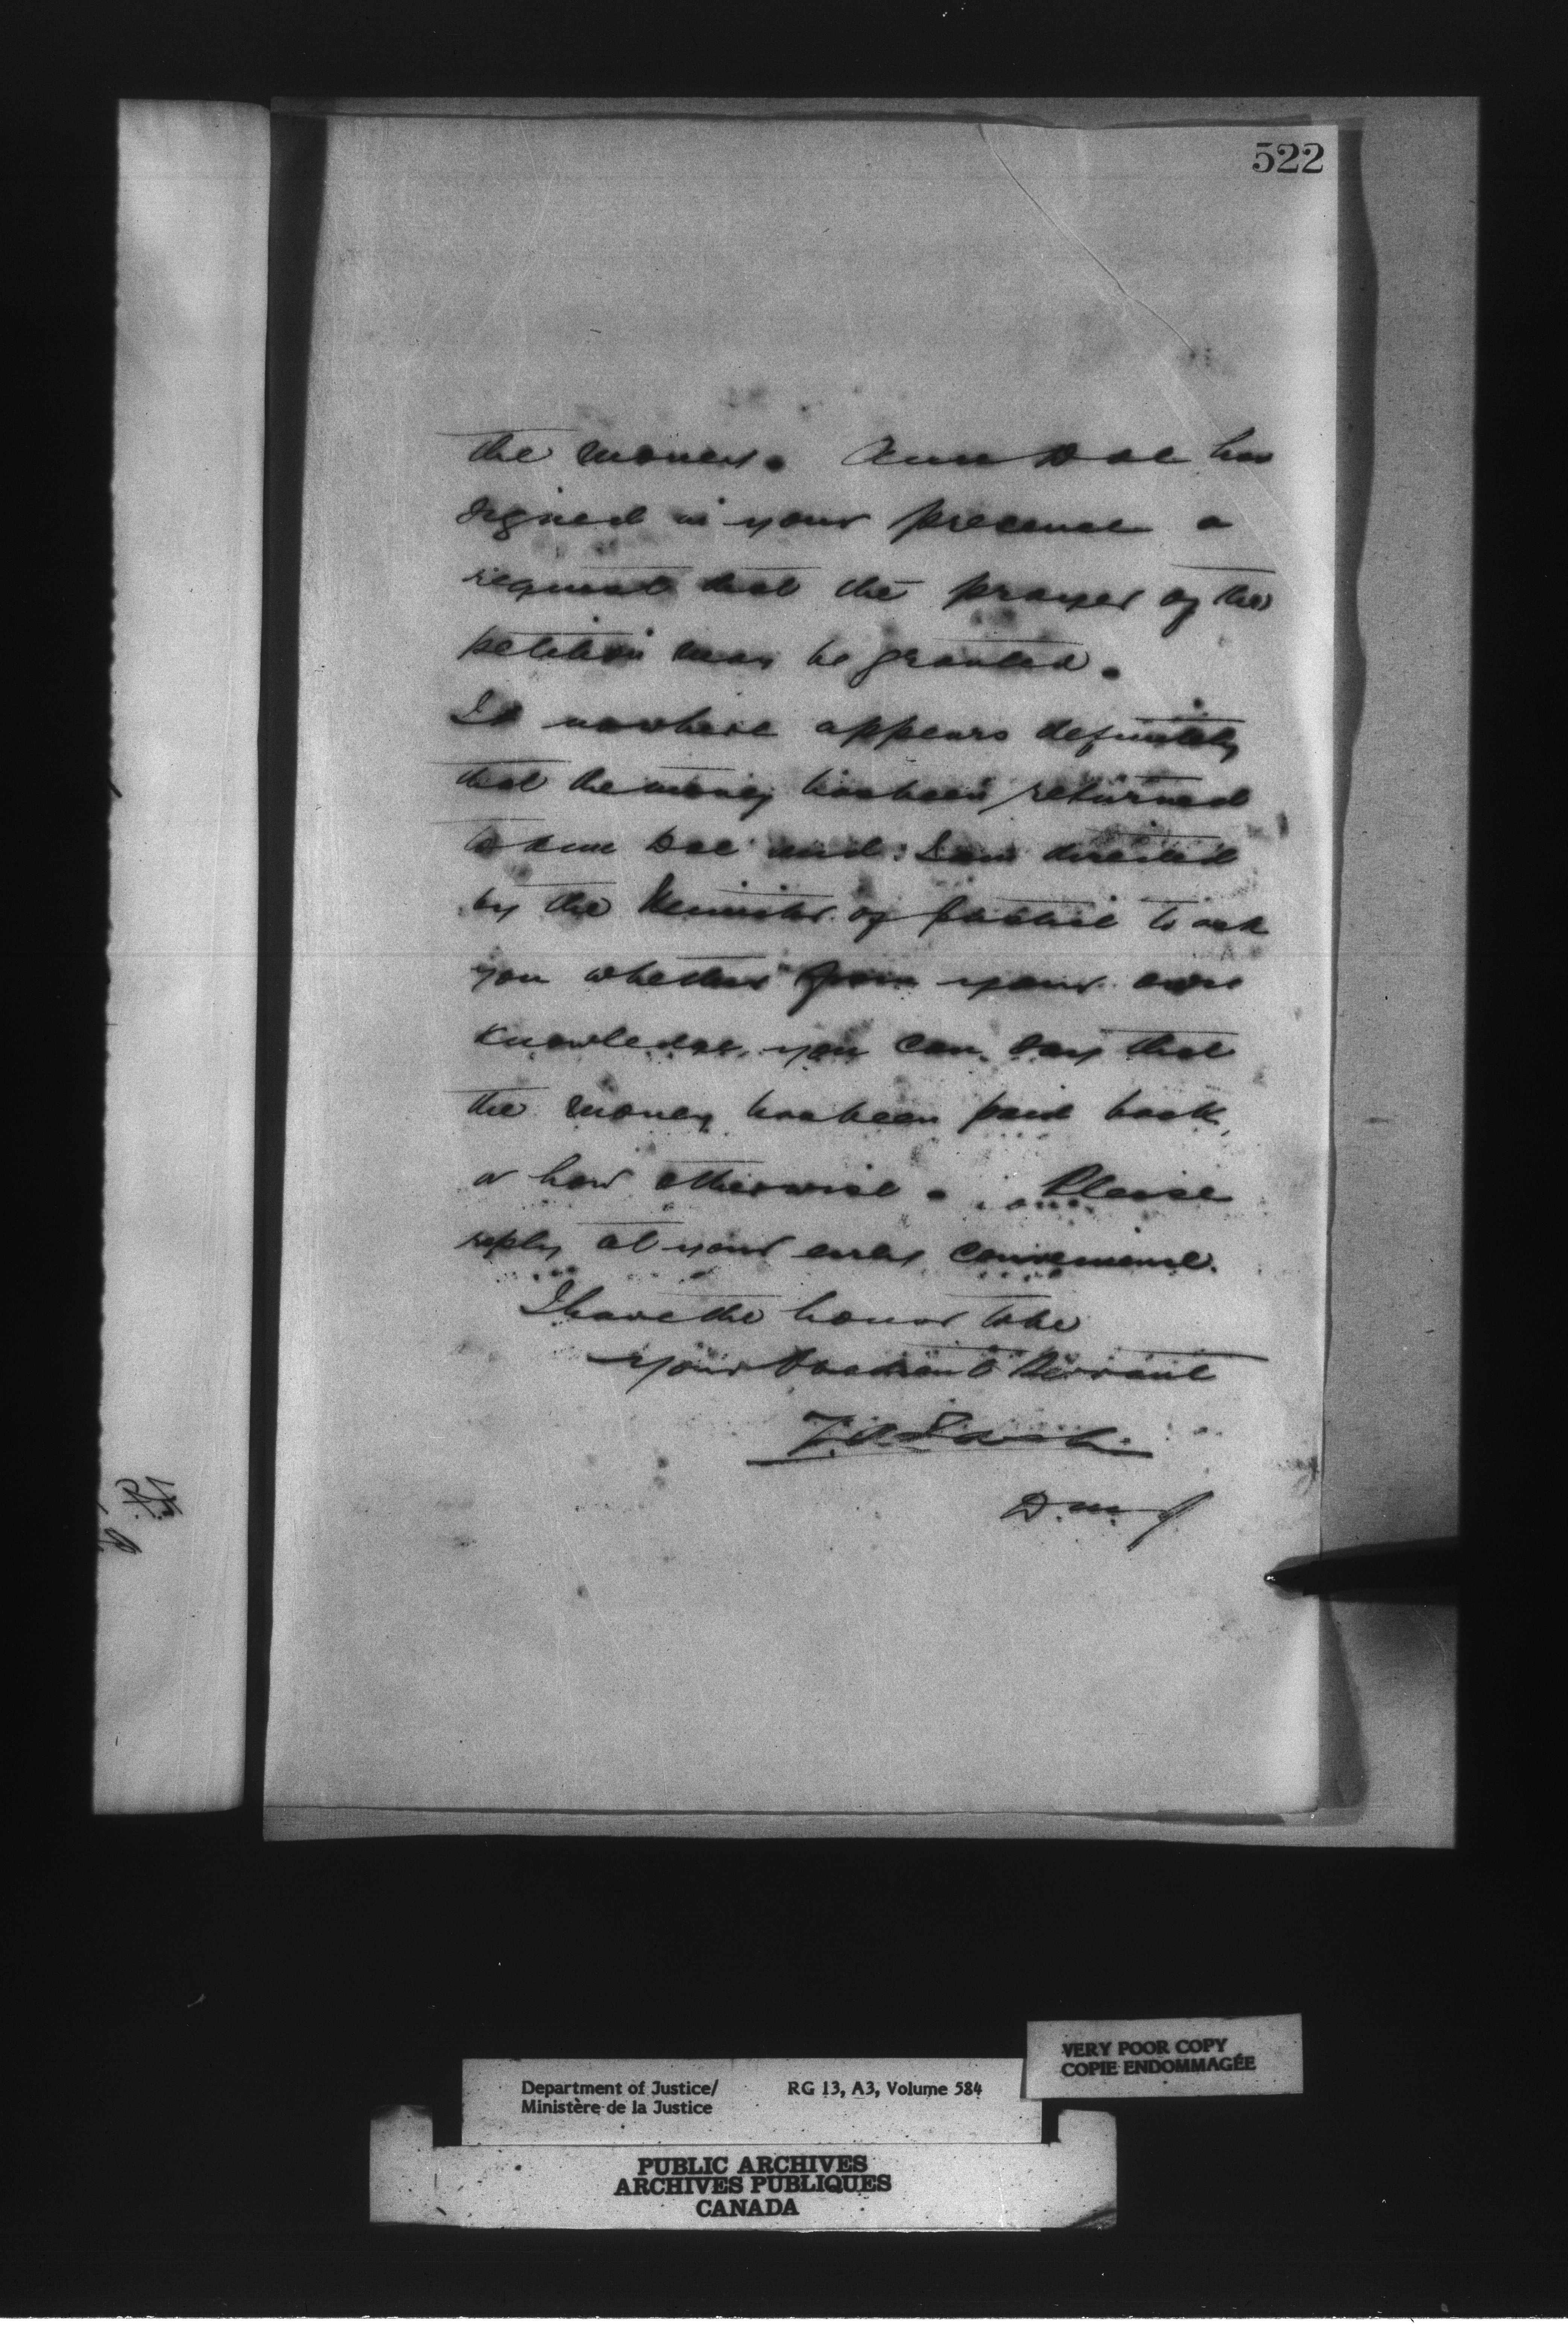 522
the money. Ann Doe has
signed in your presence a
request that the prayer of the
petition may be granted.
It nowhere appears definitely
that the money has been returned
to Ann Doe and I am directed
by the Minister of Justice to ask
you whether from your own
knowledge you can say that
the money has been paid back,
or how otherwise. Please
reply at your early convenience.
I have the honor to be
your obedient Servant
Z.A. Lash
D.M.J.
VERY POOR COPY
COPIE ENDOMMAGÉE
Department of Justice/ RG 13, A3, Volume 584
Ministère de la Justice
PUBLIC ARCHIVES
ARCHIVES PUBLIQUES
CANADA